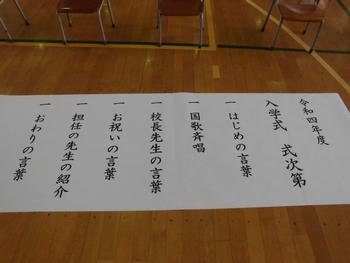 令和四年度
入学式 式次第
一 はじめの言葉
一 国歌斉唱
一 校長先生の言葉
一 お祝いの言葉
一 担任の先生の紹介
一 おわりの言葉